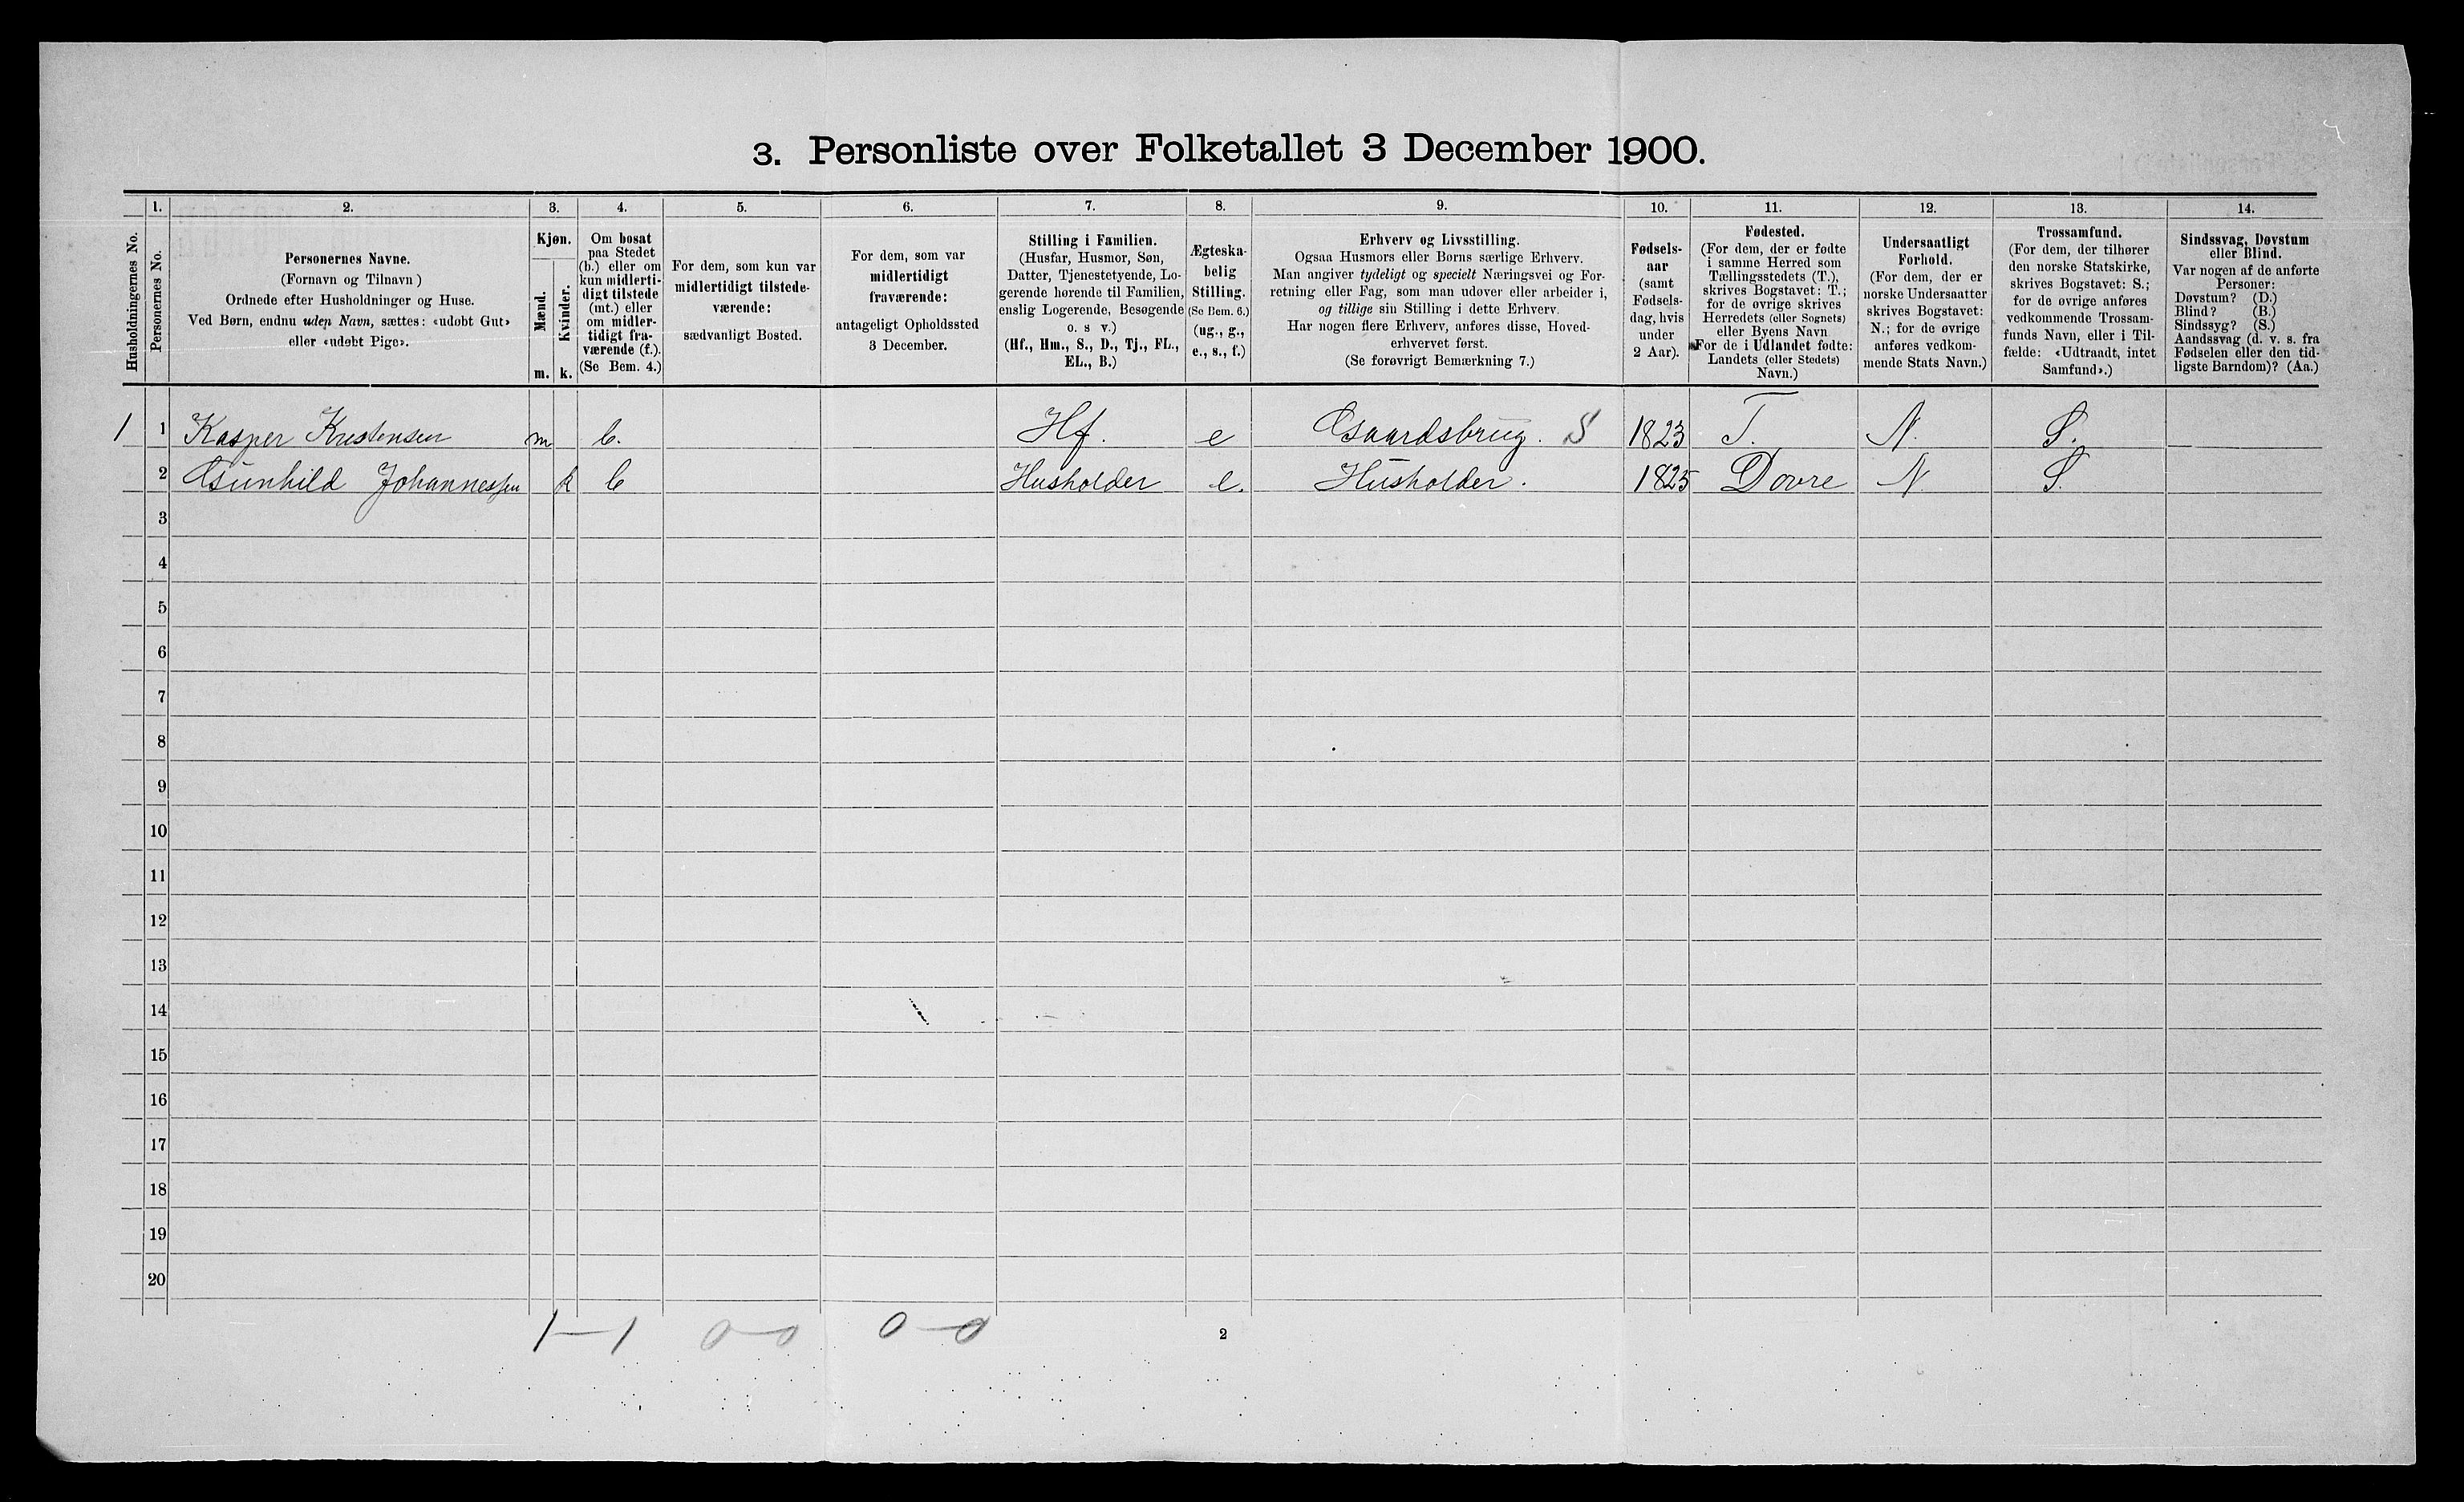 3. Personliste over Folketallet 3 December 1900.
Husholdningernes No.
1.
Personernes No.
2.
Personernes Navne.
(Fornavn og Tilnavn)
Ordnede efter Husholdninger og Huse.
Ved Børn, endnu uden Navn, sættes: «udøbt Gut»
eller «udøbt Pige».
3.
Kjøn.
Mænd.
m.
Kvinder.
k.
4.
Om bosat
paa Stedet
(b.) eller om
kun midlerti-
digt tilstede
(mt.) eller
om midler-
tidigt fra-
værende (f.).
(Se Bem. 4.)
5.
For dem, som kun var
midlertidigt tilstede-
værende:
sædvanligt Bosted.
6.
For dem, som var
midlertidigt
fraværende:
antageligt Opholdssted
3 December.
7.
Stilling i Familien.
(Husfar, Husmor, Søn,
Datter, Tjenestetyende, Lo-
gerende hørende til Familien,
enslig Logerende, Besøgende
o. s v.)
(Hf., Hm., S., D., Tj., FL.,
EL., B.)
8.
Ægteska-
belig
Stilling.
(Se Bem. 6.)
(ug., g.,
e., s., f.)
9.
Erhverv og Livsstilling.
Ogsaa Husmors eller Børns særlige Erhverv.
Man angiver tydeligt og specielt Næringsvei og For-
retning eller Fag, som man udøver eller arbeider i,
og tillige sin Stilling i dette Erhverv.
Har nogen flere Erhverv, anføres disse, Hoved-
erhvervet først.
(Se forøvrigt Bemærkning 7.)
10.
Fødsels-
aar
(samt
Fødsels-
dag, hvis
under
2 Aar).
11.
Fødested.
(For dem, der er fødte
i samme Herred som
Tællingsstedets (T.),
skrives Bogstavet: T.;
for de øvrige skrives
Herredets (eller Sognets)
eller Byens Navn
For de i Udlandet fødte:
Landets (eller Stedets)
Navn.)
12.
Undersaatligt
Forhold.
(For dem, der er
norske Undersaatter
skrives Bogstavet:
N.; for de øvrige
anføres vedkom-
mende Stats Navn.)
13.
Trossamfund.
(For dem, der tilhører
den norske Statskirke,
skrives Bogstavet: S.;
for de øvrige anføres
vedkommende Trossam-
funds Navn, eller i Til-
fælde: «Udtraadt, intet
Samfund».)
14.
Sindssvag, Døvstum
eller Blind.
Var nogen af de anførte
Personer:
Døvstum? (D.)
Blind? (B.)
Sindssyg? (S.)
Aandssvag (d. v. s. fra
Fødselen eller den tid-
ligste Barndom)? (Aa.)
1 1 Kasper Kristensen m b. Hf. e Gaardsbrug. S 1823 T. N. S.
2 Gunhild Johannessen k b Husholder e. Husholder. 1825 Dovre N S.
3
4
5
6
7
8
9
10
11
12
13
14
15
16
17
18
19
20
1-1 0-0 0-0
2